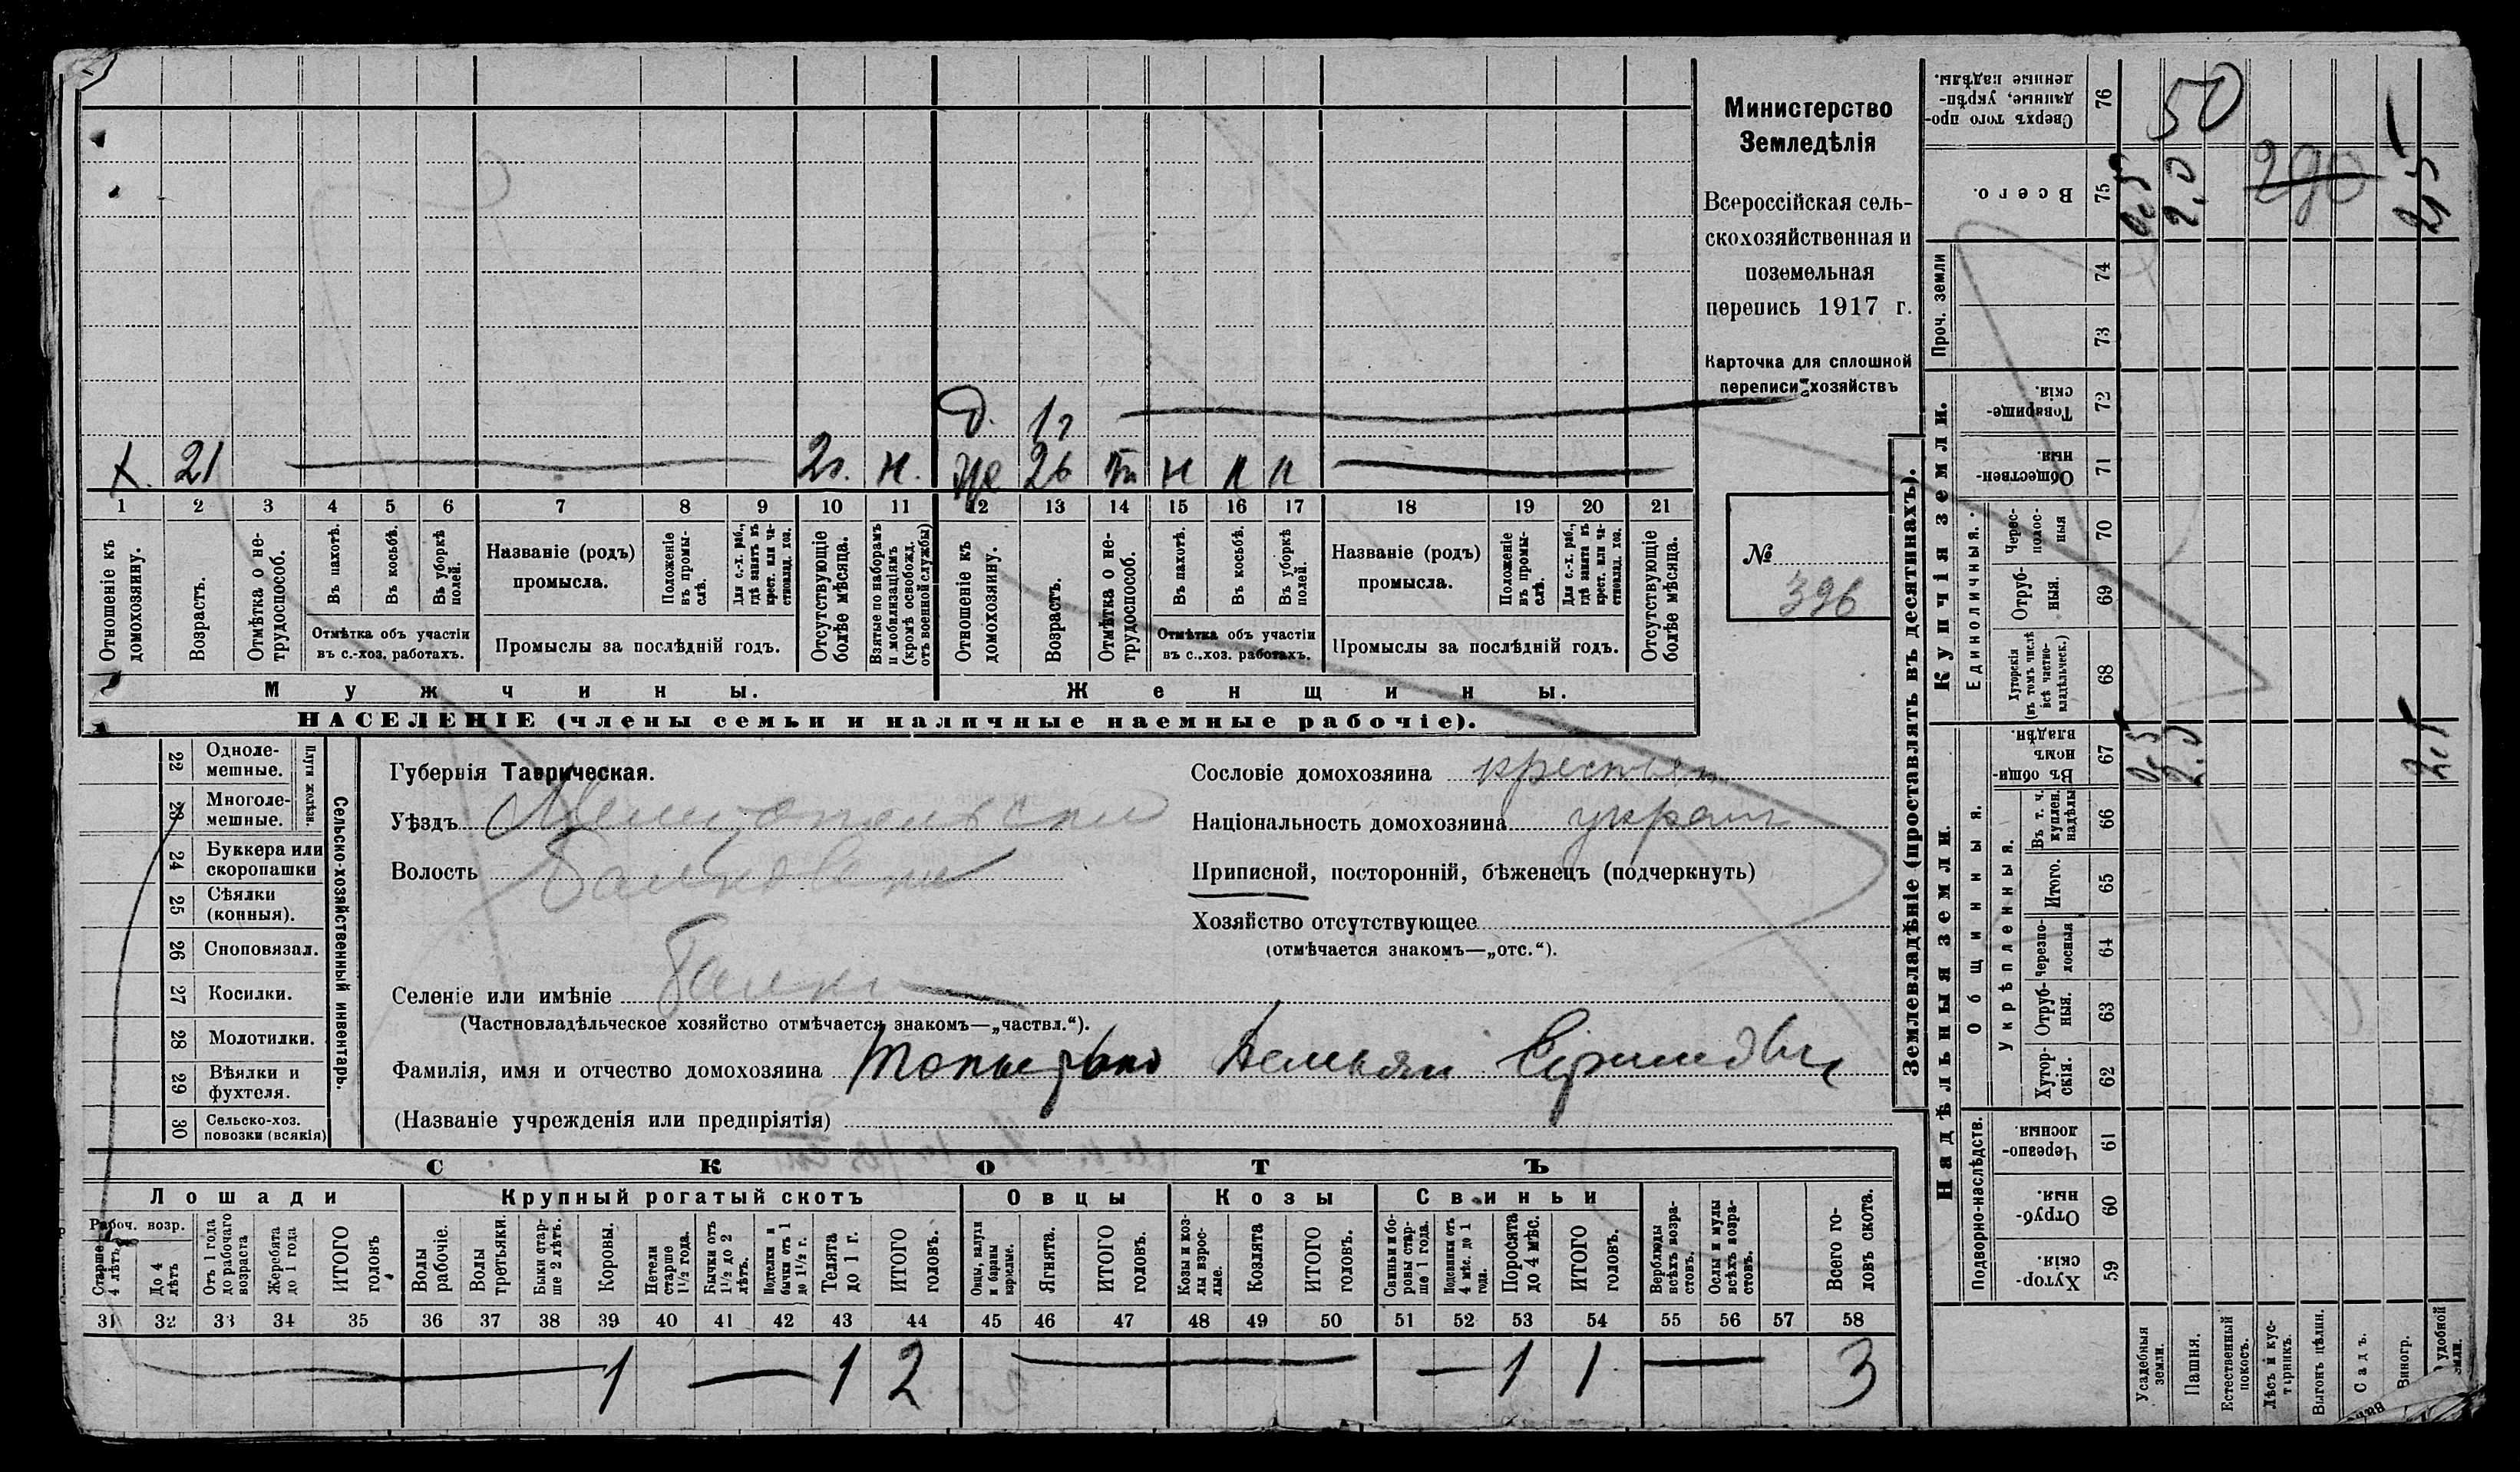 Министерство
Земледѣлія
Всероссійская сель-
скохозяйственная и
поземельная
перепись 1917 г.
Карточка для сплошной
переписи хозяйствъ
№
396
Д. 1г
Х. 21 2г. н. 26 н п п
1 2 3 4 5 6 7 8 9 10 11 12 13 14 15 16 17 18 19 20 21
Отношеніе къ домохозяину.
Возрастъ.
Отмѣтка о не-трудоспособ.
Въ пахотѣ.
Въ косьбѣ.
Въ уборкѣ полей.
Отмѣтка объ участіи
въ с.-хоз. работахъ.
Названіе (родъ)
промысла.
Положеніе въ промы-слѣ.
Для с.-х. раб., гдѣ занятъ въ крест. или ча-стновлад. хоз.
Промыслы за послѣдній годъ.
Отсутствующіе болѣе мѣсяца.
Взятые по наборамъ и мобилизаціямъ (кромѣ освобожд. отъ военной службы)
Отношеніе къ домохозяину.
Возрастъ.
Отмѣтка о не-трудоспособ.
Въ пахотѣ.
Въ косьбѣ.
Въ уборкѣ полей.
Отмѣтка объ участіи
въ с.-хоз. работахъ.
Названіе (родъ)
промысла.
Положеніе въ промы-слѣ.
Для с.-х. раб., гдѣ занята въ крест. или ча-стновлад. хоз.
Промыслы за послѣдній годъ.
Отсутствующіе болѣе мѣсяца.
Мужчины. Женщины.
НАСЕЛЕНІЕ (члены семьи и наличные наемные рабочіе).
Сельско-хозяйственный инвентарь.
Плуги желѣзн.
22 Одноле-мешные.
23 Многоле-мешные.
24 Буккера или скоропашки
25 Сѣялки (конныя).
26 Сноповязал.
27 Косилки.
28 Молотилки.
29 Вѣялки и фухтеля.
30 Сельско-хоз. повозки (всякія)
Губернія Таврическая.
Уѣздъ Мелитопольский
Волость Балковская
Селеніе или имѣніе Балки
(Частновладѣльческое хозяйство отмѣчается знакомъ—„частвл.“).
Фамилія, имя и отчество домохозяина Демьян
(Названіе учрежденія или предпріятія)
Сословіе домохозяина крестьян
Національность домохозяина украин
Приписной, посторонній, бѣженецъ (подчеркнуть)
Хозяйство отсутствующее
(отмѣчается знакомъ—„отс.“).
СКОТЪ
Лошади Крупный рогатый скотъ Овцы Козы Свиньи
Рабоч. возр.
Старше 4 лѣтъ
До 4 лѣтъ
Отъ 1 года до рабочаго возраста
Жеребята до 1 года
ИТОГО головъ
Волы рабочіе.
Волы третьяки.
Быки стар-ше 2 лѣтъ.
Коровы.
Нетели старше 1½ года.
Бычки отъ 1½ до 2 лѣтъ.
Подтелки и бычки отъ 1 до 1½ г.
Телята до 1 г.
ИТОГО головъ.
Овцы, валухи и бараны взрослые.
Ягнята.
ИТОГО головъ.
Козы и коз-лы взрос-лые.
Козлята
ИТОГО головъ.
Свиньи и бо-ровы стар-ше 1 года.
Подсвинки отъ 4 мѣс. до 1 года.
Поросята до 4 мѣс.
ИТОГО головъ.
Верблюды всѣхъ возра-стовъ.
Ослы и мулы всѣхъ возра-стовъ.
Всего го-ловъ скота.
31 32 33 34 35 36 37 38 39 40 41 42 43 44 45 46 47 48 49 50 51 52 53 54 55 56 57 58
1 1 2 1 1 3
Землевладѣніе (проставлять въ десятинахъ).
Надѣльныя земли. Купчія земли.
Подворно-наслѣдств. Общинныя. Единоличныя. Проч. земли
Укрѣпленныя.
59 Хутор-скія.
60 Отруб-ныя.
61 Черезпо-лосныя.
62 Хутор-скія.
63 Отруб-ныя.
64 Черезпо-лосныя
65 Итого.
66 Въ т. ч. куплен. надѣлы
67 Въ общи-номъ владѣн.
68 Хуторскія (въ томъ числѣ всѣ частно-владѣльческ.)
69 Отруб-ныя.
70 Черес-полос-ныя
71 Обществен-ныя.
72 Товарище-скія.
73
74
75 Всего.
76 Сверхъ того про-данные, укрѣп-ленные надѣлы.
Усадебныя земли.
Пашня.
Естественный покосъ.
Лѣсъ и кус-тарникъ.
Выгонъ цѣлин.
Садъ.
Виногр.
удобной
0,5 2,0 2,5
0,5 2,0 290 2,5
50